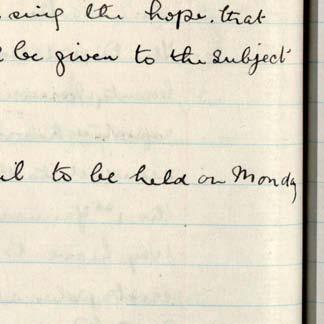 sing the hope, that
be given to the subject
il to be held on Monday